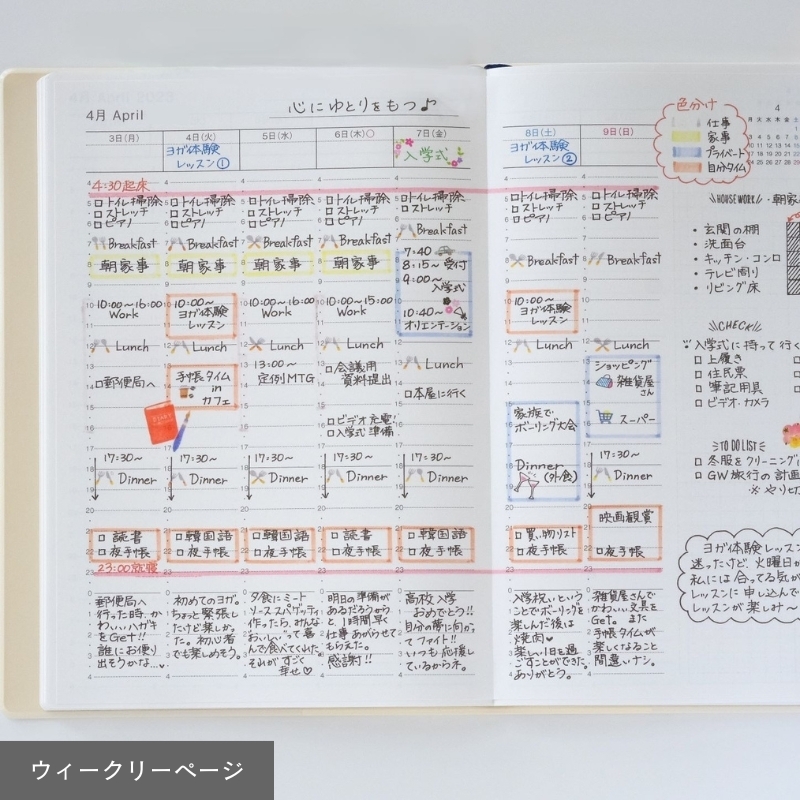 心にゆとりをもつ♪
4月 April
3日(月)
4日(火)
ヨガ体験
レッスン①
5日(水)
6日(木)
7日(金)
入学式
8日(土)
ヨガ体験
レッスン②
9日(日)
4:30起床
□トイレ掃除
□ストレッチ
□ピアノ
Breakfast
朝家事
10:00～16:00
Work
Lunch
□郵便局へ
17:30～
Dinner
□読書
□夜手帳
23:00就寝
郵便局へ
行った時、か
わいいハガキ
をGet!!
誰にお便り
出そうかな…♥
□トイレ掃除
□ストレッチ
□ピアノ
Breakfast
朝家事
10:00～
ヨガ体験
レッスン
Lunch
手帳タイム
in
カフェ
17:30～
Dinner
□韓国語
□夜手帳
初めてのヨガ。
ちょっと緊張し
たけど楽しかっ
た。初心者
でも楽しめそう。
□トイレ掃除
□ストレッチ
□ピアノ
Breakfast
朝家事
10:00～16:00
Work
Lunch
13:00～
定例MTG
17:30～
Dinner
□韓国語
□夜手帳
夕食にミート
ソーススパゲッティ
作ったら、みんな
おいしいって喜
んで食べてくれた。
それが すごく
幸せ♡
□トイレ掃除
□ストレッチ
□ピアノ
Breakfast
朝家事
10:00～15:00
Work
Lunch
□会議用
資料提出
□ビデオ充電!
□入学式準備
17:30～
Dinner
□読書
□夜手帳
明日の準備が
あるだろうから
と、1時間早く
仕事あがらせて
もらえた。
感謝!!
□トイレ掃除
□ストレッチ
Breakfast
7:40
8:15～受付
9:00～
入学式
10:40～
オリエンテーション
Lunch
□本屋に行く
17:30～
Dinner
□韓国語
□夜手帳
高校入学
おめでとう!!
自分の夢に向かっ
てファイト!!
いつも応援し
ているからネ。
□トイレ掃除
□ストレッチ
□ピアノ
Breakfast
10:00～
ヨガ体験
レッスン
Lunch
家族で
ボーリング大会
Dinner
(外食)
□買い物リスト
□夜手帳
入学祝いという
ことでボーリングを
楽しんだ後は
焼肉♥
楽しい1日を過
ごすことができた。
ありがとう。
□トイレ掃除
□ストレッチ
□ピアノ
Breakfast
Lunch
ショッピング
雑貨屋
さん
スーパー
17:30～
Dinner
映画観賞
□夜手帳
雑貨屋さんで
かわいい文具を
Get。また
手帳タイムが
楽しくなること
間違いナシ。
色分け
仕事
家事
プライベート
自分タイム
4
HOUSE WORK
・朝家
・玄関の棚
・洗面台
・キッチン・コンロ
・テレビ周り
・リビング床
CHECK
入学式に持って行く
□上履き
□住民票
□筆記用具
□ビデオ・カメラ
TO DO LIST
□冬服をクリーニング
□GW旅行の計画
※やり切
ヨガ体験レッスン
迷ったけど、火曜日か
私には合ってる気が
レッスンに申し込んで
レッスンが楽しみ～
ウィークリーページ